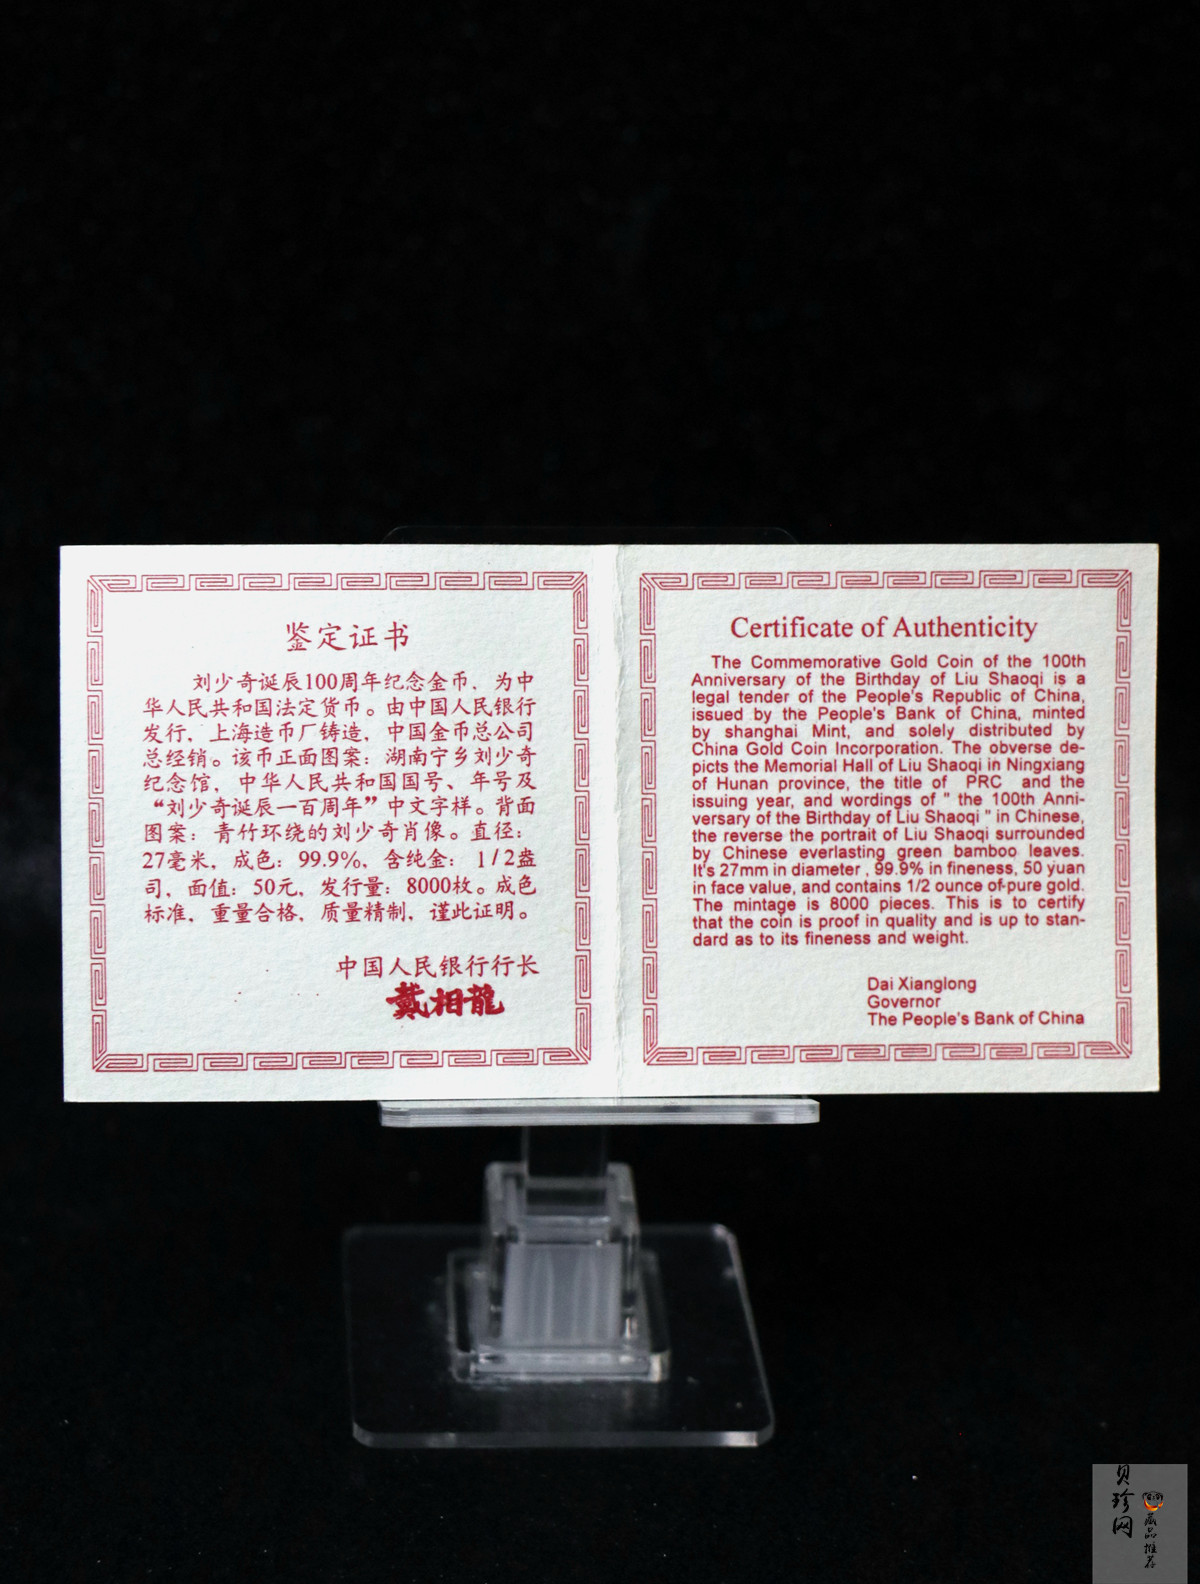 鉴定证书
刘少奇诞辰100周年纪念金币，为中
华人民共和国法定货币。由中国人民银行
发行，上海造币厂铸造，中国金币总公司
总经销。该币正面图案：湖南宁乡刘少奇
纪念馆，中华人民共和国国号、年号及
“刘少奇诞辰一百周年”中文字样。背面
图案：青竹环绕的刘少奇肖像。直径：
27毫米，成色：99.9%，含纯金：1/2盎
司，面值：50元，发行量：8000枚。成色
标准，重量合格，质量精制，谨此证明。
中国人民银行行长
戴相龍
Certificate of Authenticity
The Commemorative Gold Coin of the 100th
Anniversary of the Birthday of Liu Shaoqi is a
legal tender of the People's Republic of China,
issued by the People's Bank of China, minted
by shanghai Mint, and solely distributed by
China Gold Coin Incorporation. The obverse de-
picts the Memorial Hall of Liu Shaoqi in Ningxiang
of Hunan province, the title of PRC and the
issuing year, and wordings of " the 100th Anni-
versary of the Birthday of Liu Shaoqi " in Chinese,
the reverse the portrait of Liu Shaoqi surrounded
by Chinese everlasting green bamboo leaves.
It's 27mm in diameter , 99.9% in fineness, 50 yuan
in face value, and contains 1/2 ounce of pure gold.
The mintage is 8000 pieces. This is to certify
that the coin is proof in quality and is up to stan-
dard as to its fineness and weight.
Dai Xianglong
Governor
The People's Bank of China
贝珍网
藏品推荐